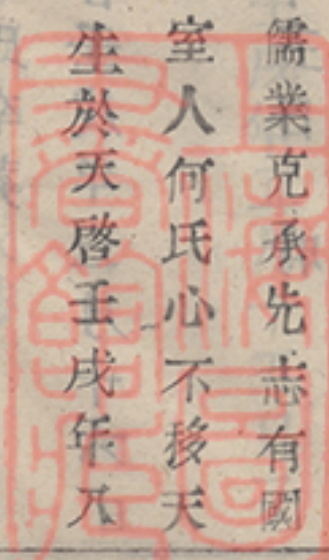 儒業克承先志有國
室人何氏心不移天
生於天啓壬戌年八